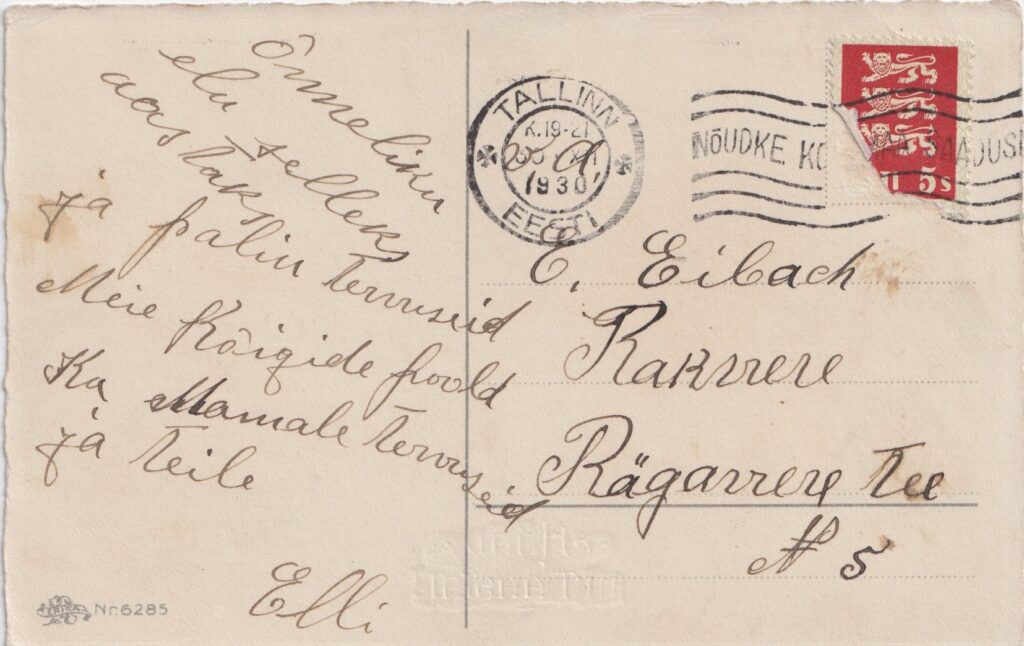 Õnneliku
elu selleks
aastaks
ja palju tervuseid
Meie kõigide poold
Ka Mamale tervuseid
ja teile
Elli
Nr 6285
TALLINN
K.19-21
XII
1930
EESTI
NÕUDKE KO MAA SAADUSI
5s
E. Eibach
Rakvere
Rägavere tee
N 5